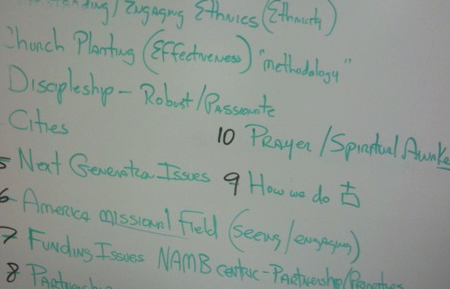 Engaging Ethnics (Ethnicity)
Church Planting (Effectiveness) "methodology"
Discipleship - Robust/Passionate
Cities
10 Prayer/Spiritual Awake
5 Next Generation Issues
9 How we do
6 America missional field (Seeing/engaging)
7 Funding Issues NAMB centric - Partnership/Priorities
8